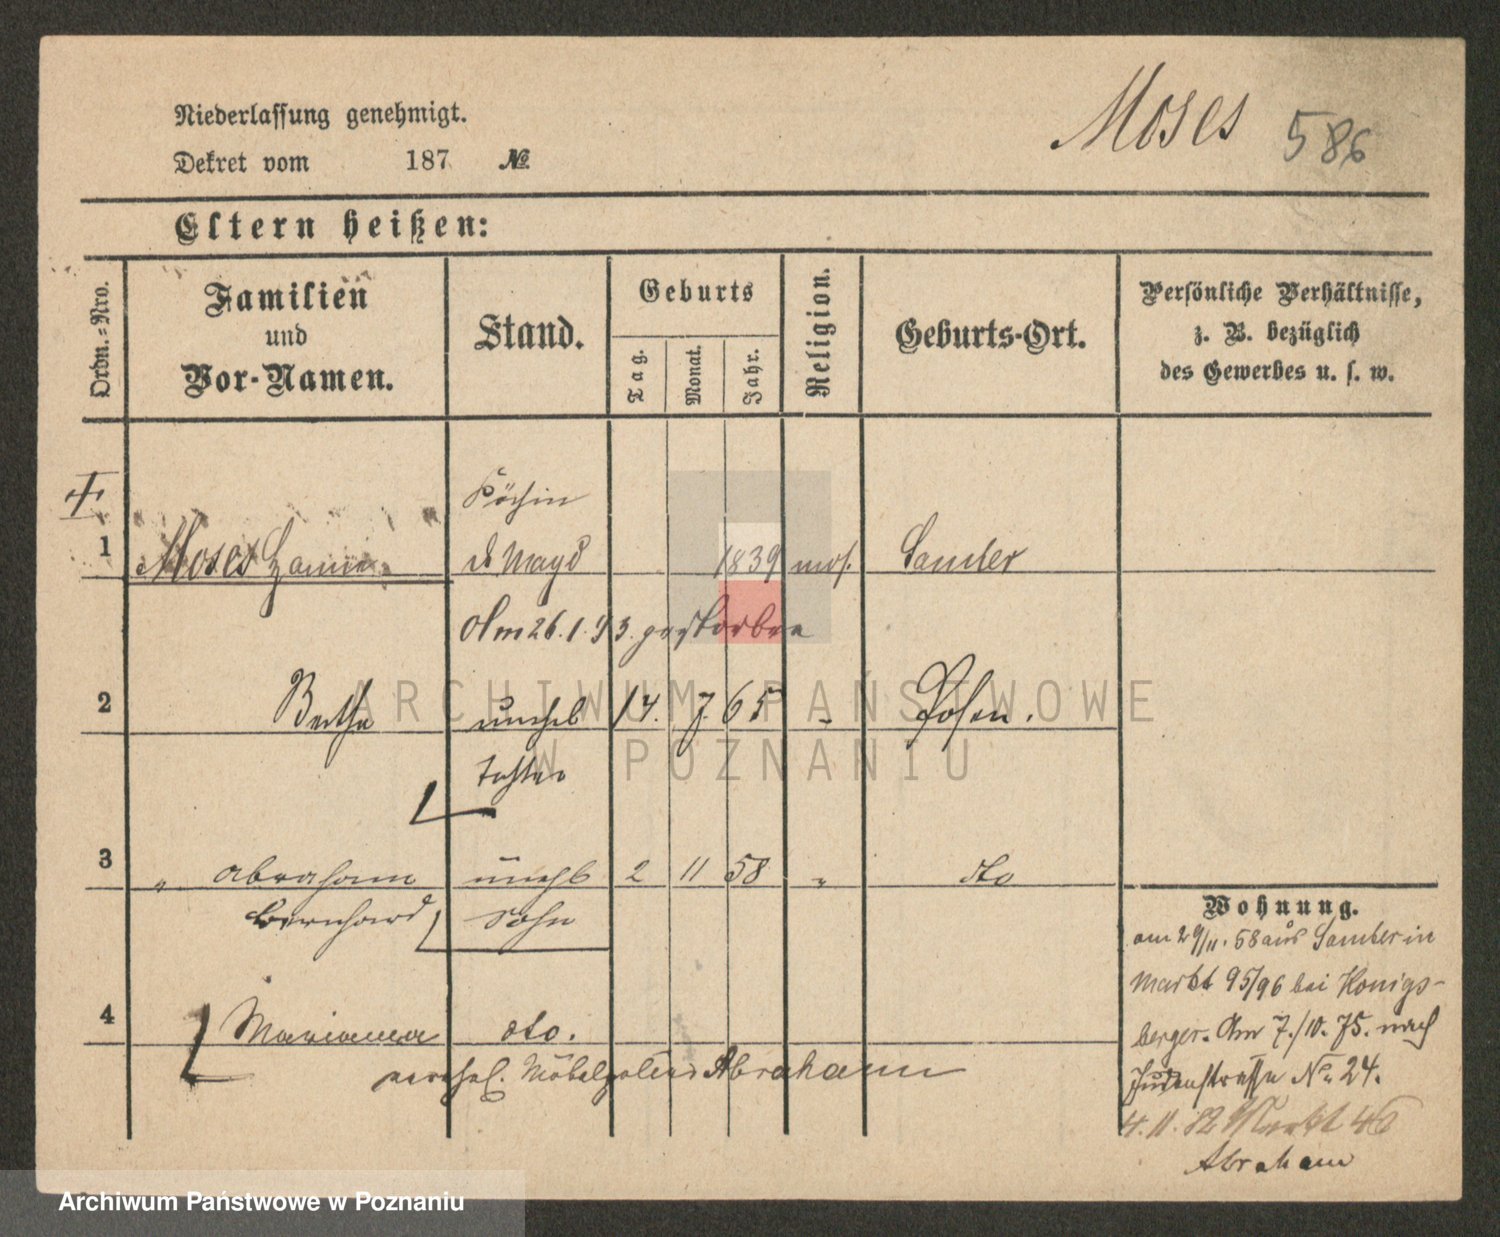 Niederlassung genehmigt.
Moses 586
Dekret vom 187 №
Eltern heißen:
Ordn.-Nro.
Familien
und
Vor-Namen.
Stand.
Geburts
Tag.
Monat.
Jahr.
Religion.
Geburts-Ort.
Persönliche Verhältnisse,
z. B. bezüglich
des Gewerbes u. s. w.
Köchin
1 Moses Hanne & Magd 1839 mos. Samter
Am 26.1.93. gestorben
2 Bertha unehel 14. 7. 65 " Posen.
Tochter
3 " Abraham unehl 2 11 58 " dto
Bernhard Sohn
4 Marianna dto.
verehel. Möbelpolirer Abraham
Wohnung.
am 29/11. 58 aus Samter in
Markt 95/96 bei Königs-
berger. Am 7./10. 75. nach
Judenstraße No 24.
4. 11. 82 Markt 46
Abraham
ARCHIWUM PAŃSTWOWE
W POZNANIU
Archiwum Państwowe w Poznaniu